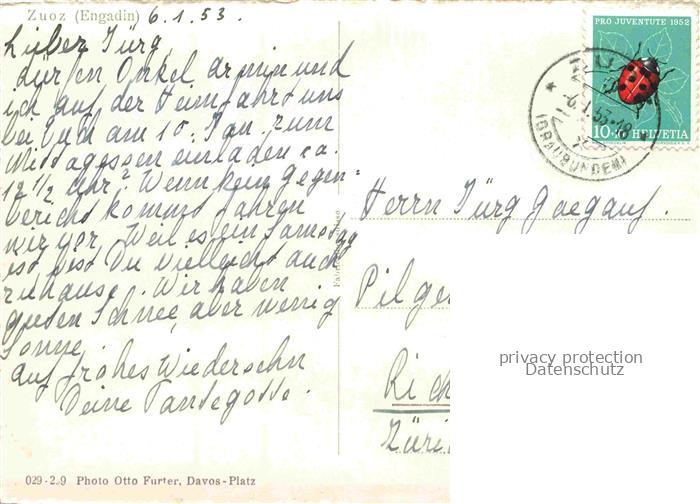 Zuoz (Engadin) 6.1.53.
Lieber Jürg,
dürfen Onkel Armin und
ich auf der Heimfahrt uns
bei Euch am 10. Jan. zum
Mittagessen einladen ca.
12 1/2 Uhr? Wenn kein Gegen-
bericht kommt fahren
wir vor. Weil es ein Samstag
ist, bist Du vielleicht auch
zuhause. Wir haben
guten Schnee, aber wenig
Sonne.
Auf frohes Wiedersehn
Deine Tante
029-2 9 Photo Otto Furter, Davos-Platz
PRO JUVENTUTE 1952
10+10 HELVETIA
(GRAUBÜNDEN)
Herrn Jürg
Pilge
Rich
Züri
privacy protection
Datenschutz